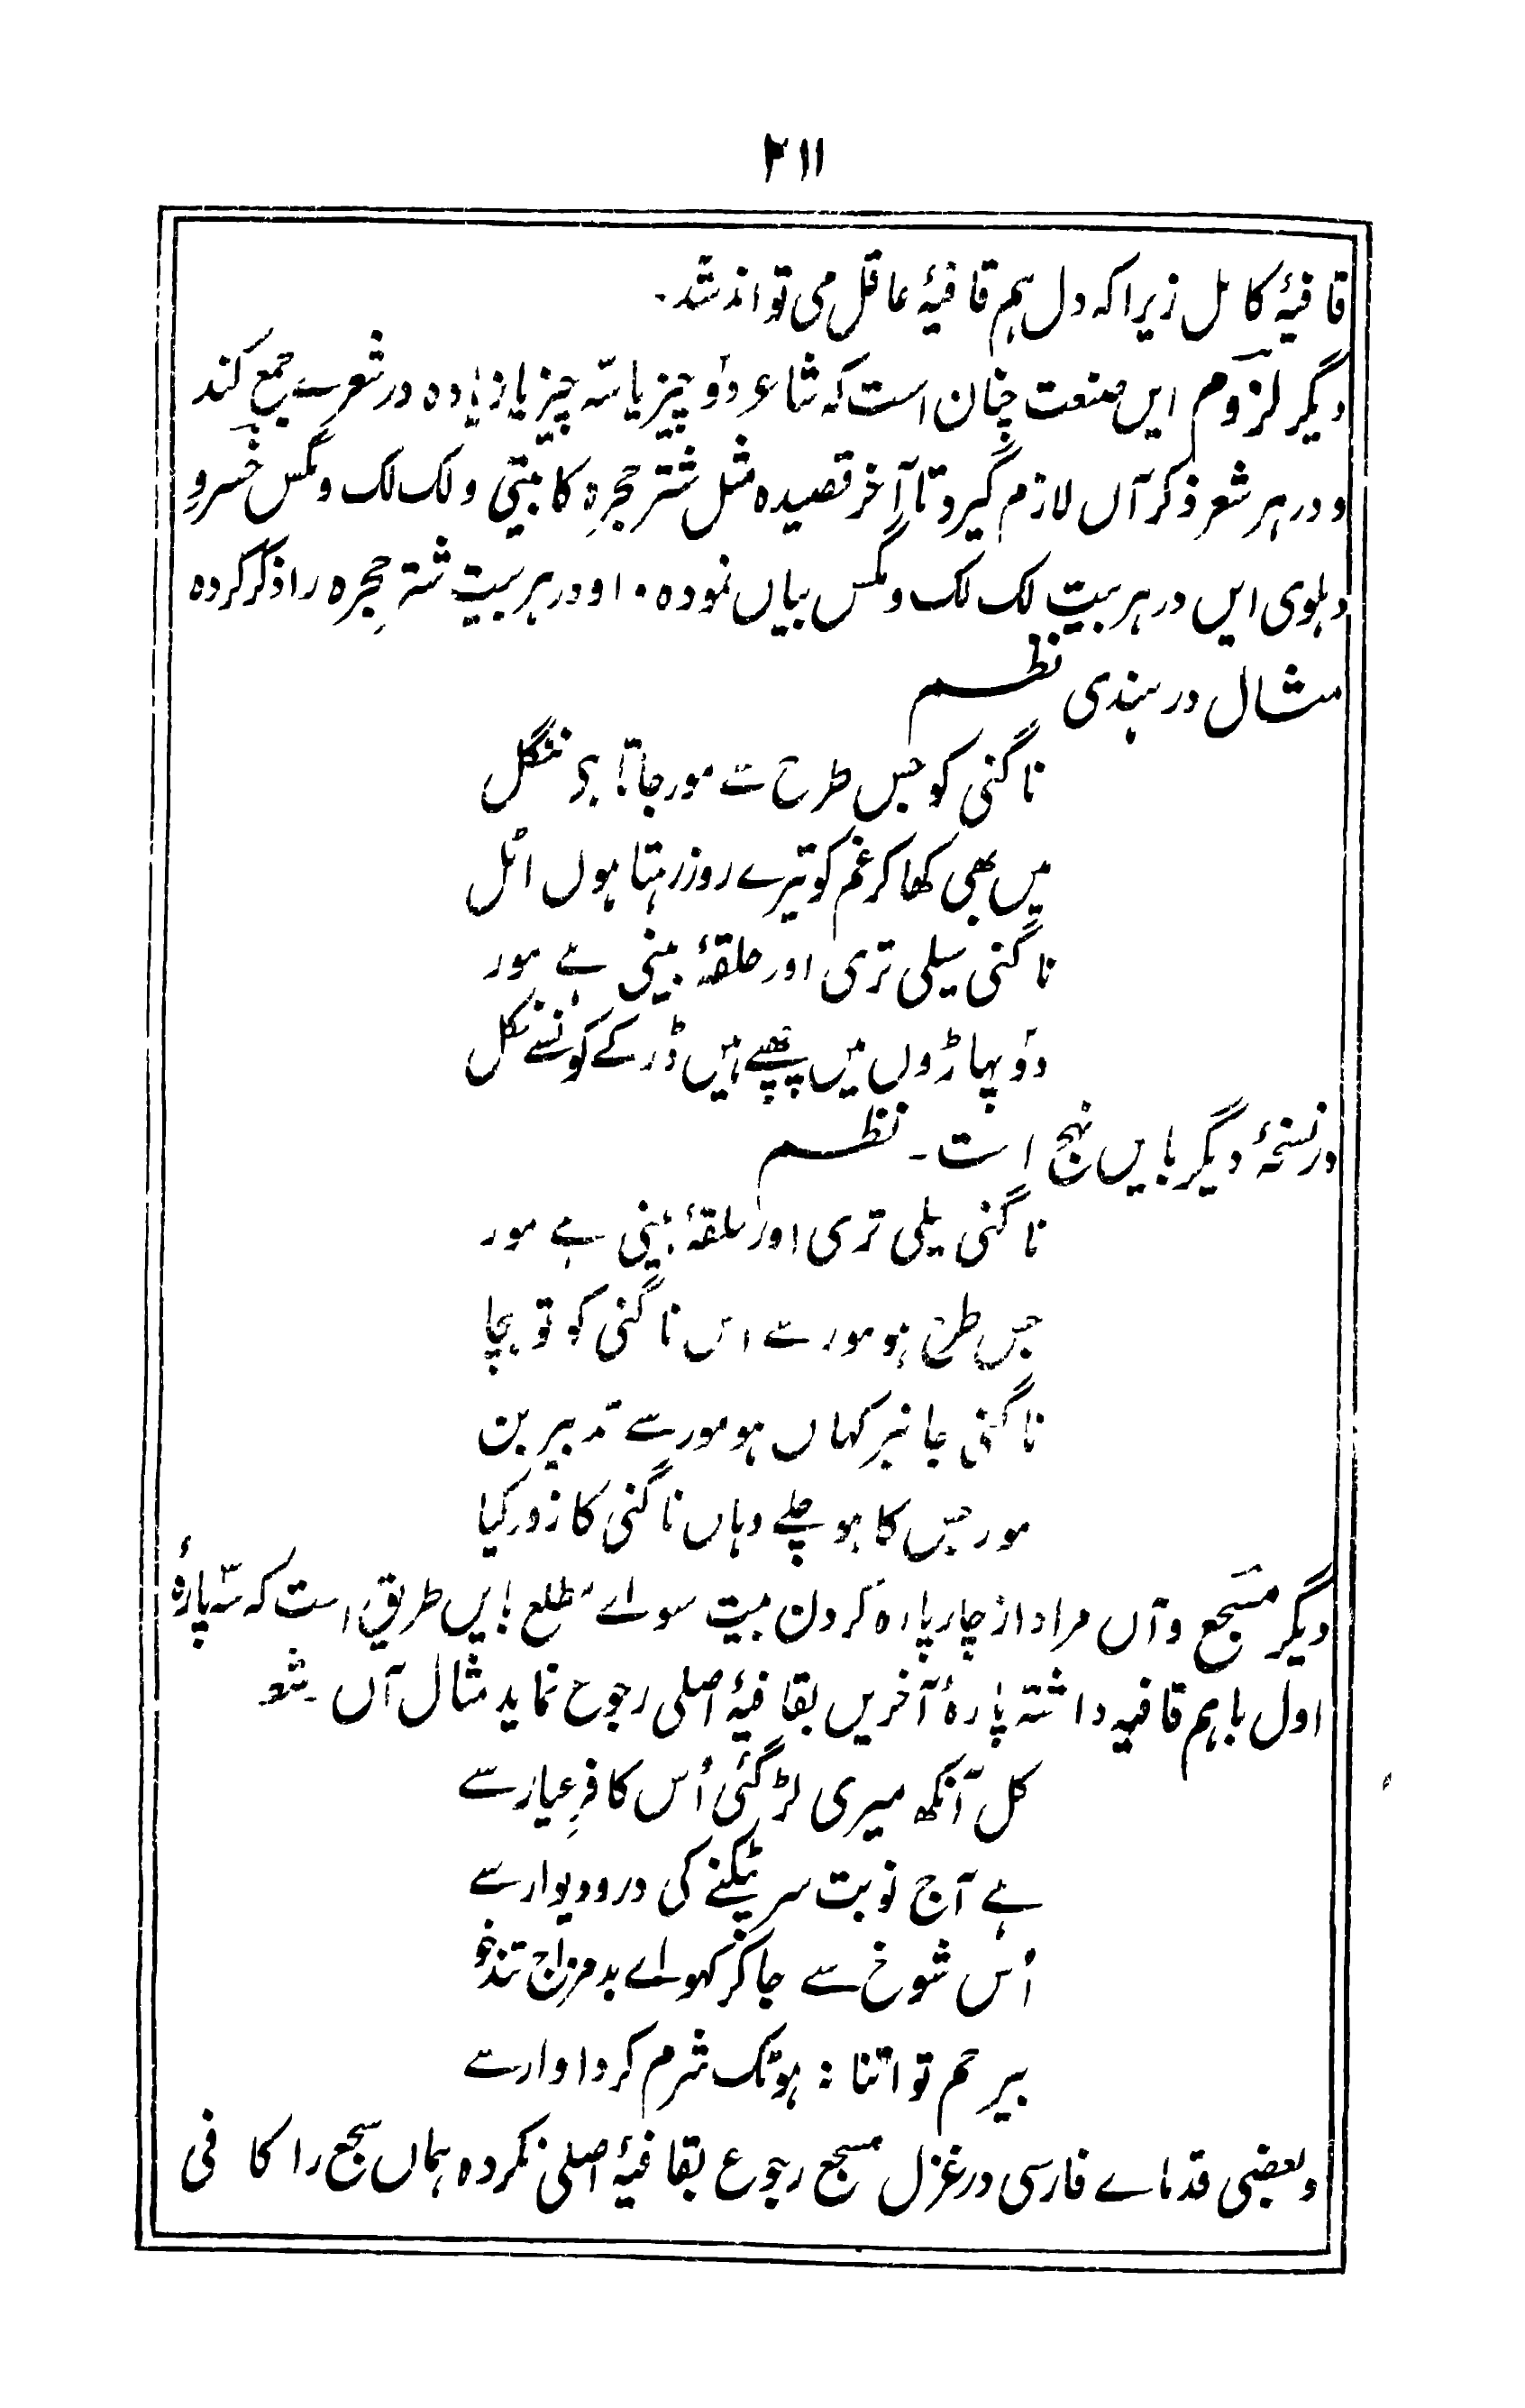 ۲۱۱
قافیۂ کامل زیرا کہ دل ہم قافیۂ عاقل می تواند شد۔
دیگر لزوم ایں صنعت چنان است کہ شاعر دو چیز یا سہ چیز یا زیادہ در شعرے جمع کند
و در ہر شعر ذکر آں لازم گیرد تا آخر قصیدہ مثل شتر حجرہِ کاتبی و لک لک و مگس خسروِ
دہلوی ایں در ہر بیت لک لک و مگس بیاں نمودہ۔ او در ہر بیت شترِ حجرہ را ذکر کردہ
مثال در ہندی نظم
ناگنی کو جس طرح سے مور جاتا ہے نگل
میں بھی کھا کر غم کو تیرے روز رہتا ہوں اٹل
ناگنی سیلی تری اور حلقۂ بینی ہے مور
دو پہاڑوں میں چھپے ہیں ڈر کے کونسے نکل
در نسخۂ دیگر بایں نہج است۔ نظم
ناگنی سیلی تری اور حلقۂ بینی ہے مور
جس طرح ہو مور سے اس ناگنی کو تو بچا
ناگنی جانبر کہاں ہو مور سے تدبیر بن
مور جس کا ہو چلے وہاں ناگنی کا زور کیا
دیگر مسجع و آں مراد از چار پارہ کردن بیت سواے مطلع بایں طریق است کہ سہ پارۂ
اول باہم قافیہ داشتہ پارۂ آخریں بقافیۂ اصلی رجوع نماید مثال آں شعر
کل آنکھ میری لڑ گئی اُس کافرِ عیار سے
ہے آج نوبت سر پٹکنے کی در و دیوار سے
اُس شوخ سے جا کر کہو اے بدمزاج تندخو
بیرحم تو اتنا نہ ہو ٹک شرم کر دادار سے
و بعضی قدماے فارسی در غزل مسجع رجوع بقافیۂ اصلی نکردہ ہماں سجع را کافی